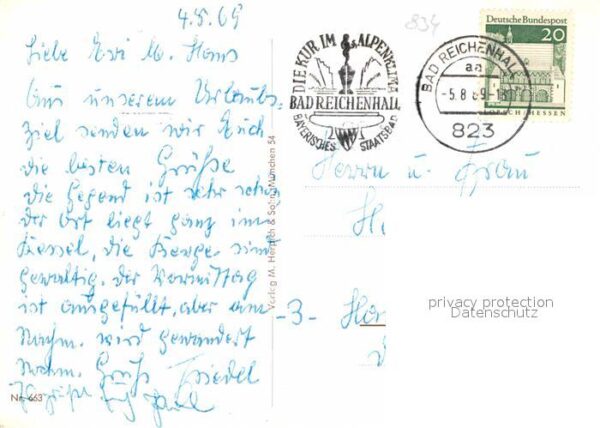 4.8.69
Liebe Evi u. Hans
Aus unserem Urlaubs-
ziel senden wir Euch
die besten Grüße
die Gegend ist sehr schön
der Ort liegt ganz im
Kessel, die Berge sind
gewaltig. der Vormittag
ist ausgefüllt, aber am
Nachm. wird gewandert
Gruß Friedel
Paul
Nr. 663
Verlag M. Herpich & Sohn, München 54
834
DIE KUR IM ALPENKLIMA
BAD REICHENHALL
BAYERISCHES STAATSBAD
BAD REICHENHALL
aa
-5.8.69-18
823
Deutsche Bundespost
20
LORSCH/HESSEN
Herrn u. Frau
-3-
privacy protection
Datenschutz